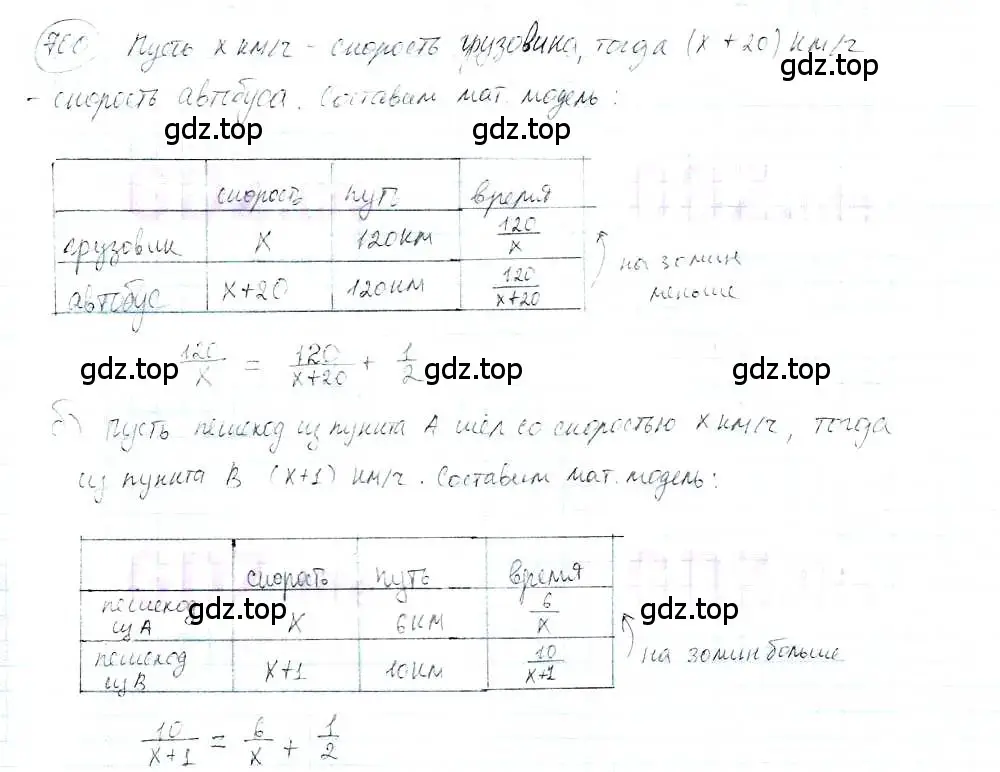 760 Пусть x км/ч - скорость грузовика, тогда (x + 20) км/ч
- скорость автобуса. Составим мат. модель:
gdz.top
gdz.top gdz.top
скорость путь время
грузовик x 120км 120/x
автобус x+20 120км 120/(x+20)
на 30мин
меньше
120/x = 120/(x+20) + 1/2
gdz.top gdz.top gdz.top
б) Пусть пешеход из пункта A шёл со скоростью x км/ч, тогда
из пункта B (x+1) км/ч. Составим мат. модель:
gdz.top gdz.top
скорость путь время
пешеход из A x 6км 6/x
пешеход из B x+1 10км 10/(x+1)
на 30мин больше
gdz.top gdz.top
10/(x+1) = 6/x + 1/2